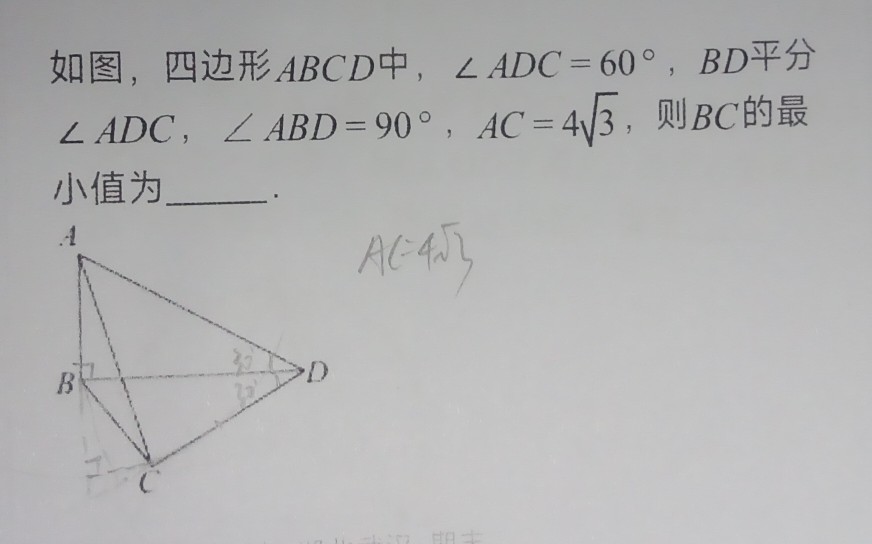 如图，四边形ABCD中，∠ADC=60°，BD平分
∠ADC，∠ABD=90°，AC=4√3，则BC的最
小值为______.
A
AC=4√3
30°
B
D
30°
C